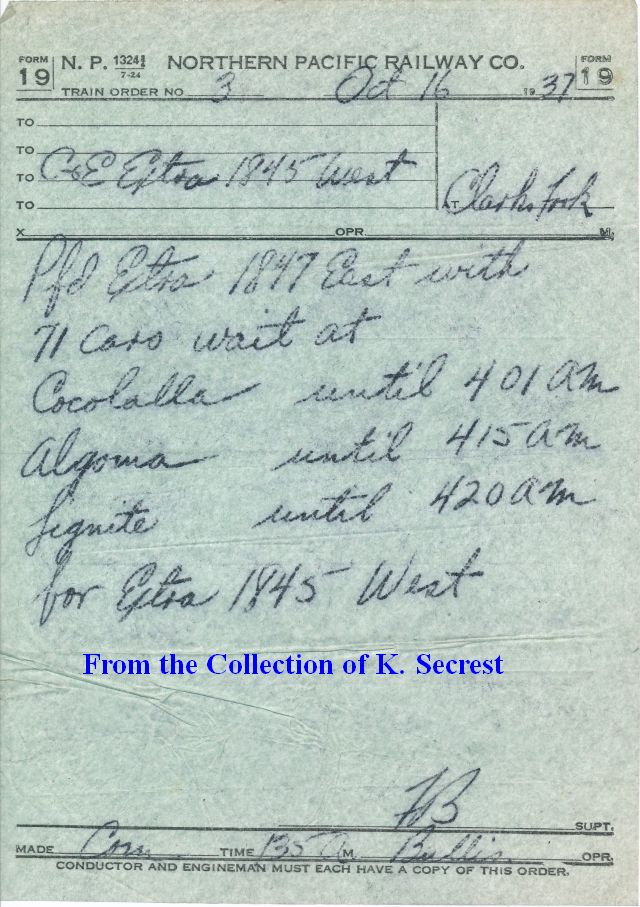 FORM 19 N. P. 1324½ 7-24 NORTHERN PACIFIC RAILWAY CO. FORM 19
TRAIN ORDER NO 3 Oct 16 1937
TO
TO
TO C&E Extra 1845 West
TO AT Clarks Fork
X OPR. M.
Pfd Extra 1847 East with
71 Cars wait at
Cocolalla until 401 AM
Algoma until 415 AM
Lignite until 420 AM
for Extra 1845 West
From the Collection of K. Secrest
SUPT.
MADE Com TIME 135 A M Bullis OPR.
CONDUCTOR AND ENGINEMAN MUST EACH HAVE A COPY OF THIS ORDER.